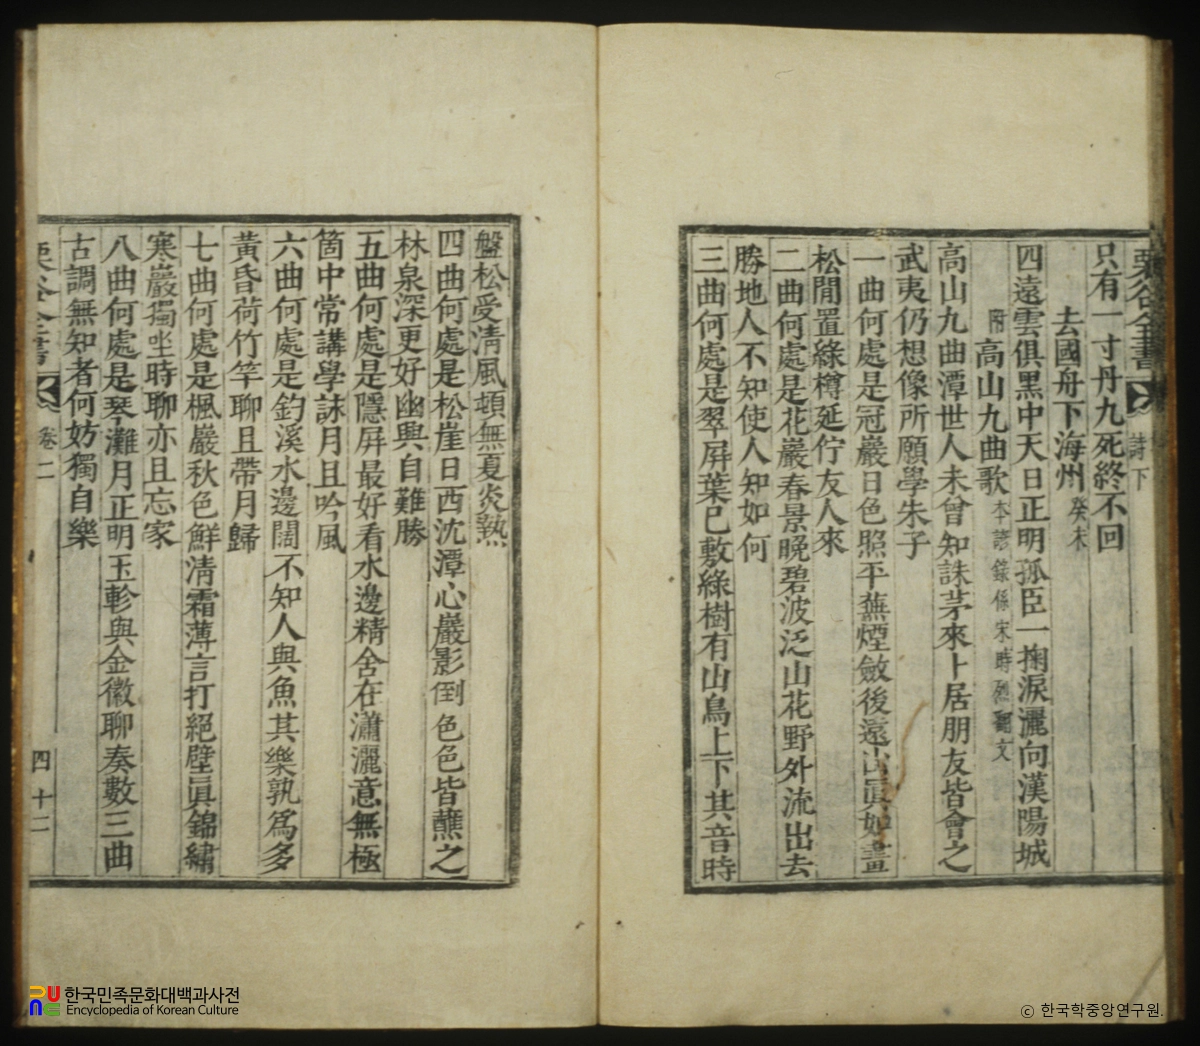 栗谷全書 詩下
只有一寸丹九死終不回
去國舟下海州 癸未
四遠雲俱黑中天日正明孤臣一掬淚灑向漢陽城
附高山九曲歌 本諺錄係宋時烈翻文
高山九曲潭世人未曾知誅茅來卜居朋友皆會之
武夷仍想像所願學朱子
一曲何處是冠巖日色照平蕪煙斂後遠山眞如畫
松閒置綠樽延佇友人來
二曲何處是花巖春景晚碧波泛山花野外流出去
勝地人不知使人知如何
三曲何處是翠屛葉已敷綠樹有山鳥上下其音時
盤松受淸風頓無夏炎熱
四曲何處是松崖日西沈潭心巖影倒色色皆蘸之
林泉深更好幽興自難勝
五曲何處是隱屛最好看水邊精舍在瀟灑意無極
箇中常講學詠月且吟風
六曲何處是釣溪水邊闊不知人與魚其樂孰爲多
黃昏荷竹竿聊且帶月歸
七曲何處是楓巖秋色鮮淸霜薄言打絕壁眞錦繡
寒巖獨坐時聊亦且忘家
八曲何處是琴灘月正明玉軫與金徽聊奏數三曲
古調無知者何妨獨自樂
栗谷全書 卷二 四十二
한국민족문화대백과사전
Encyclopedia of Korean Culture
ⓒ 한국학중앙연구원.